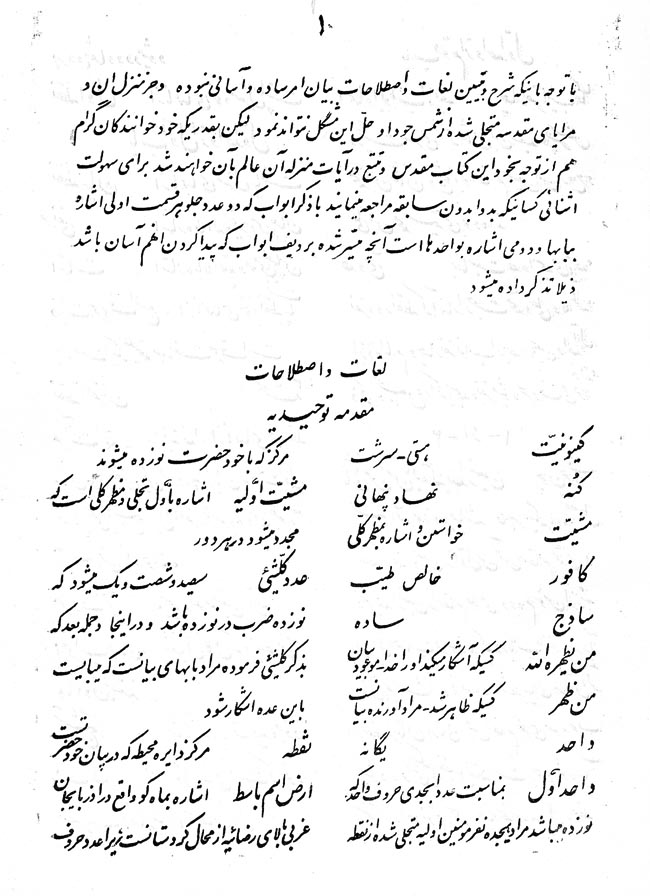 ۱۰
با توجه باینکه شرح و تبیین لغات و اصطلاحات بیان امر ساده و آسانی نبوده و جز منزل ان و
مرایای مقدسه متجلی شده از شمس جود او حل این مشکل نتواند نمود لیکن بقدریکه خود خوانندگان گرام
هم از توجه بخود این کتاب مقدس و تتبع در آیات منزله آن عالم بآن خواهند شد برای سهولت
اشنائی کسانیکه بدوا بدون سابقه مراجعه مینمایند با ذکر ابواب که دو عدد جلو هر قسمت اولی اشاره
ببابها و دومی اشاره بواحد ها است آنچه میسر شده بردیف ابواب که پیدا کردن انهم آسان باشد
ذیلا تذکر داده میشود
لغات و اصطلاحات
مقدمه توحیدیه
کینونیّت هستی - سرشت
کُنه نهاد و پنهانی
مشیّت خواستن و اشاره بمظهر کلّی
کافور خالص طیب
ساذج ساده
من یظهره الله کسیکه آشکار میکند او را خدا - موعود بیان
من ظهر کسیکه ظاهر شد - مراد آورنده بیانست
واحد یگانه
واحد اوّل بمناسبت عدد ابجدی حروف واحد که
نوزده میباشد مراد هیجده نفر مومنین اولیه متجلی شده از نقطه
مرکز که با خود حضرت نوزده میشوند
مشیّت اوّلیه اشاره باوّل تجلی و مظهر کلی است که
مجدد میشود در هر دور
عدد کلّشئی سیصد و شصت و یک میشود که
نوزده ضرب در نوزده باشد و در اینجا و جمله بعد که
بذکر کلشئی فرموده مراد بابهای بیانست که میبایست
باین عده اشکار شود
نقطه مرکز دایره محیطه که در بیان خود حضرتست
ارض اسم باسط اشاره بماه کو واقع در اذربایجان
غربی بالای رضائیه از محال کردستانست زیرا عدد حروف